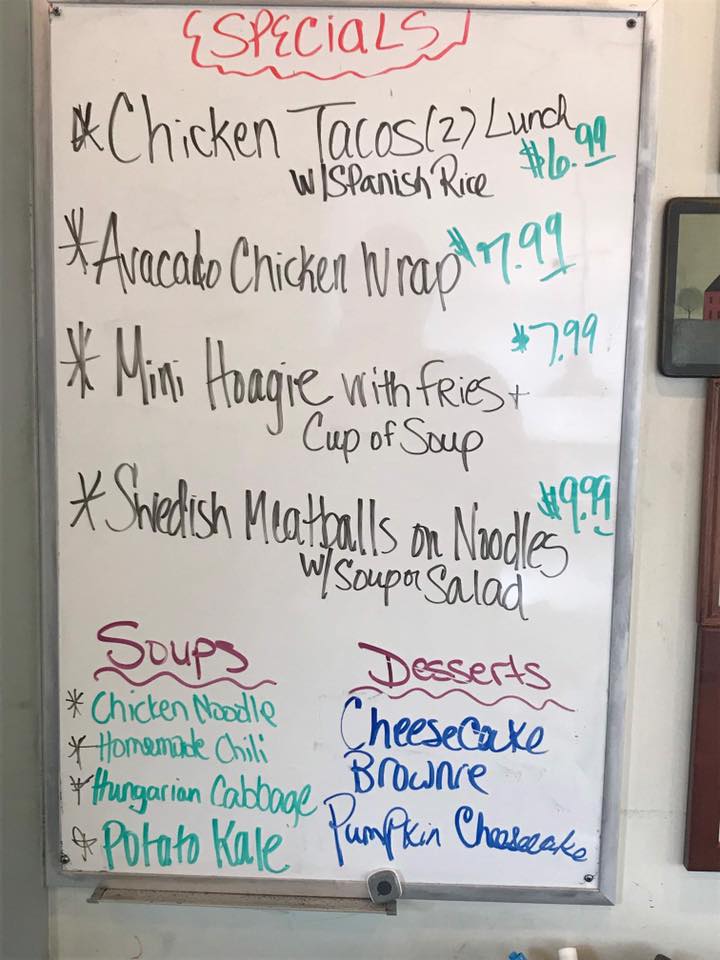 SPECiALS
* Chicken Tacos (2) Lunch $6.99
w/Spanish Rice
* Avacado Chicken Wrap $7.99
* Mini Hoagie with fries + $7.99
Cup of Soup
* Swedish Meatballs on Noodles $9.99
w/ Soup or Salad
Soups
* Chicken Noodle
* Homemade Chili
* Hungarian Cabbage
* Potato Kale
Desserts
Cheesecake
Brownie
Pumpkin Cheesecake